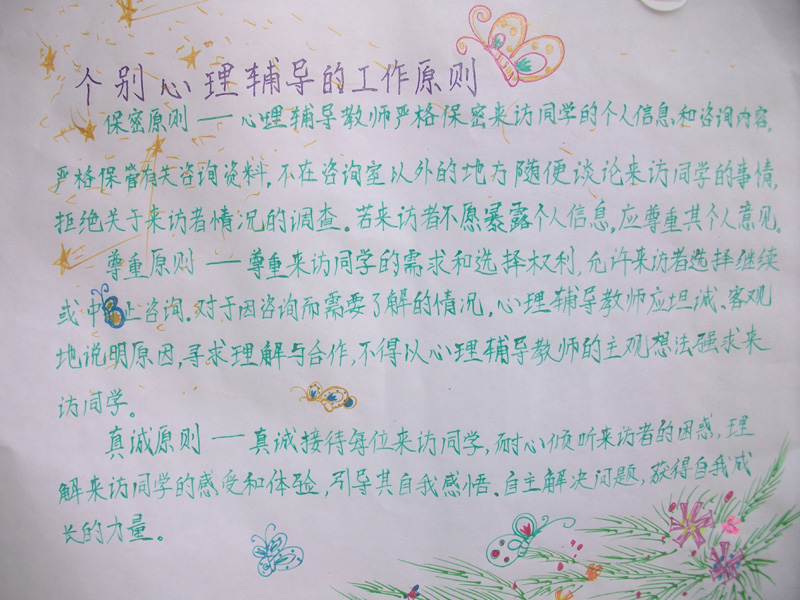 个别心理辅导的工作原则
保密原则——心理辅导教师严格保密来访同学的个人信息和咨询内容。
严格保管有关咨询资料,不在咨询室以外的地方随便谈论来访同学的事情,
拒绝关于来访者情况的调查。若来访者不愿暴露个人信息,应尊重其个人意见。
尊重原则——尊重来访同学的需求和选择权利,允许来访者选择继续
或中止咨询。对于因咨询而需要了解的情况,心理辅导教师应坦诚、客观
地说明原因,寻求理解与合作,不得以心理辅导教师的主观想法强求来
访同学。
真诚原则——真诚接待每位来访同学,耐心倾听来访者的困惑,理
解来访同学的感受和体验,引导其自我感悟、自主解决问题,获得自我成
长的力量。